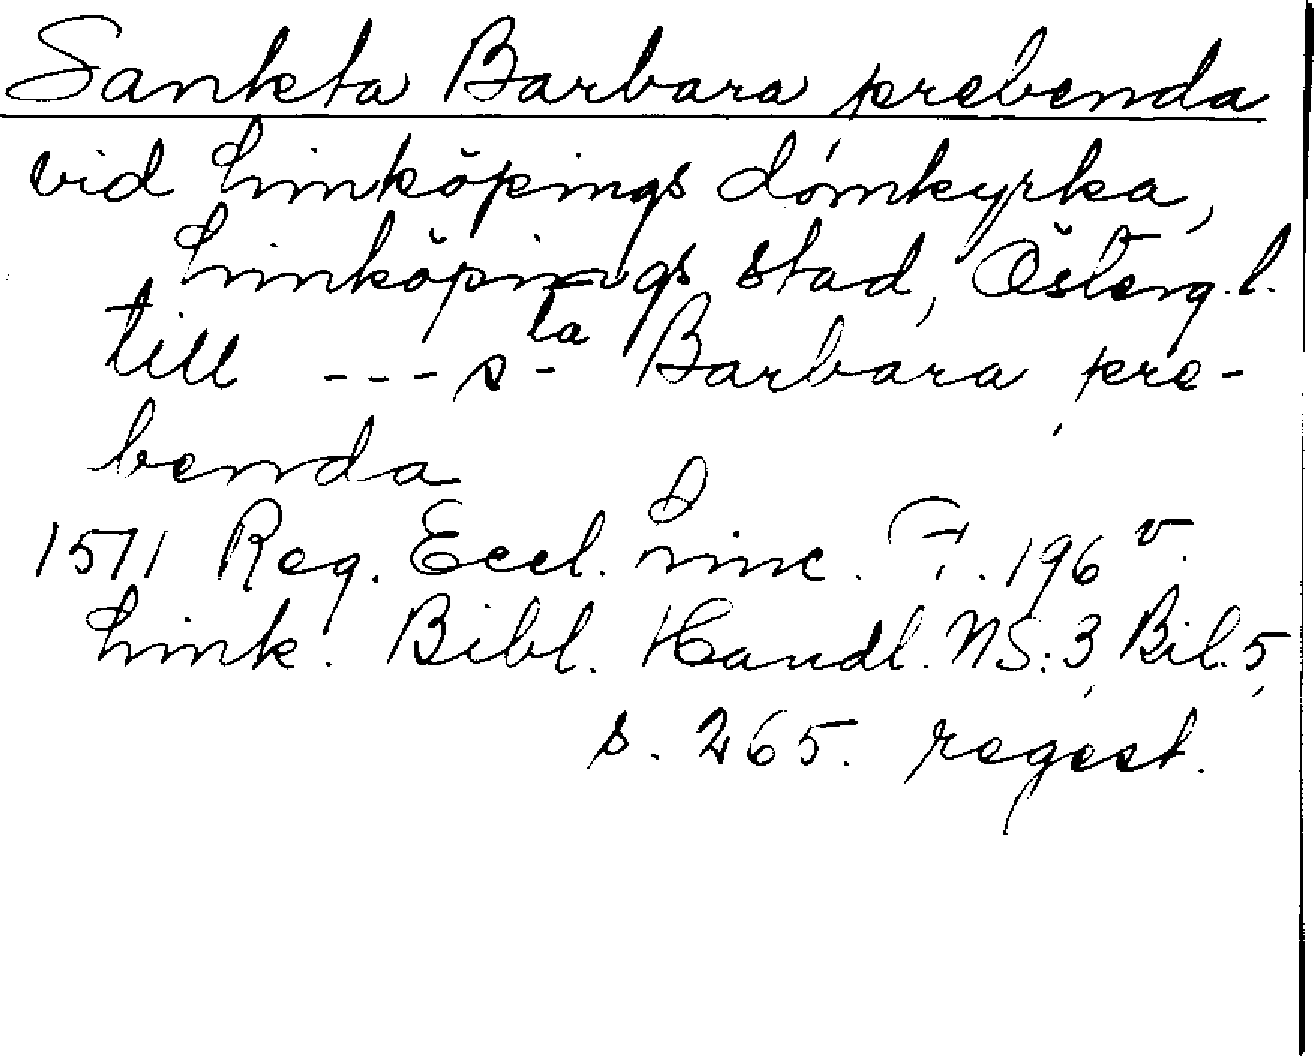 Sankta Barbara prebenda
vid Linköpings domkyrka,
Linköpings stad, Österg.l.
till --- s-ta Barbara pre-
benda
1571 Reg. Eccl. Linc. F. 196 v.
Link. Bibl. Handl. NS: 3, Bil. 5,
s. 265. regest.